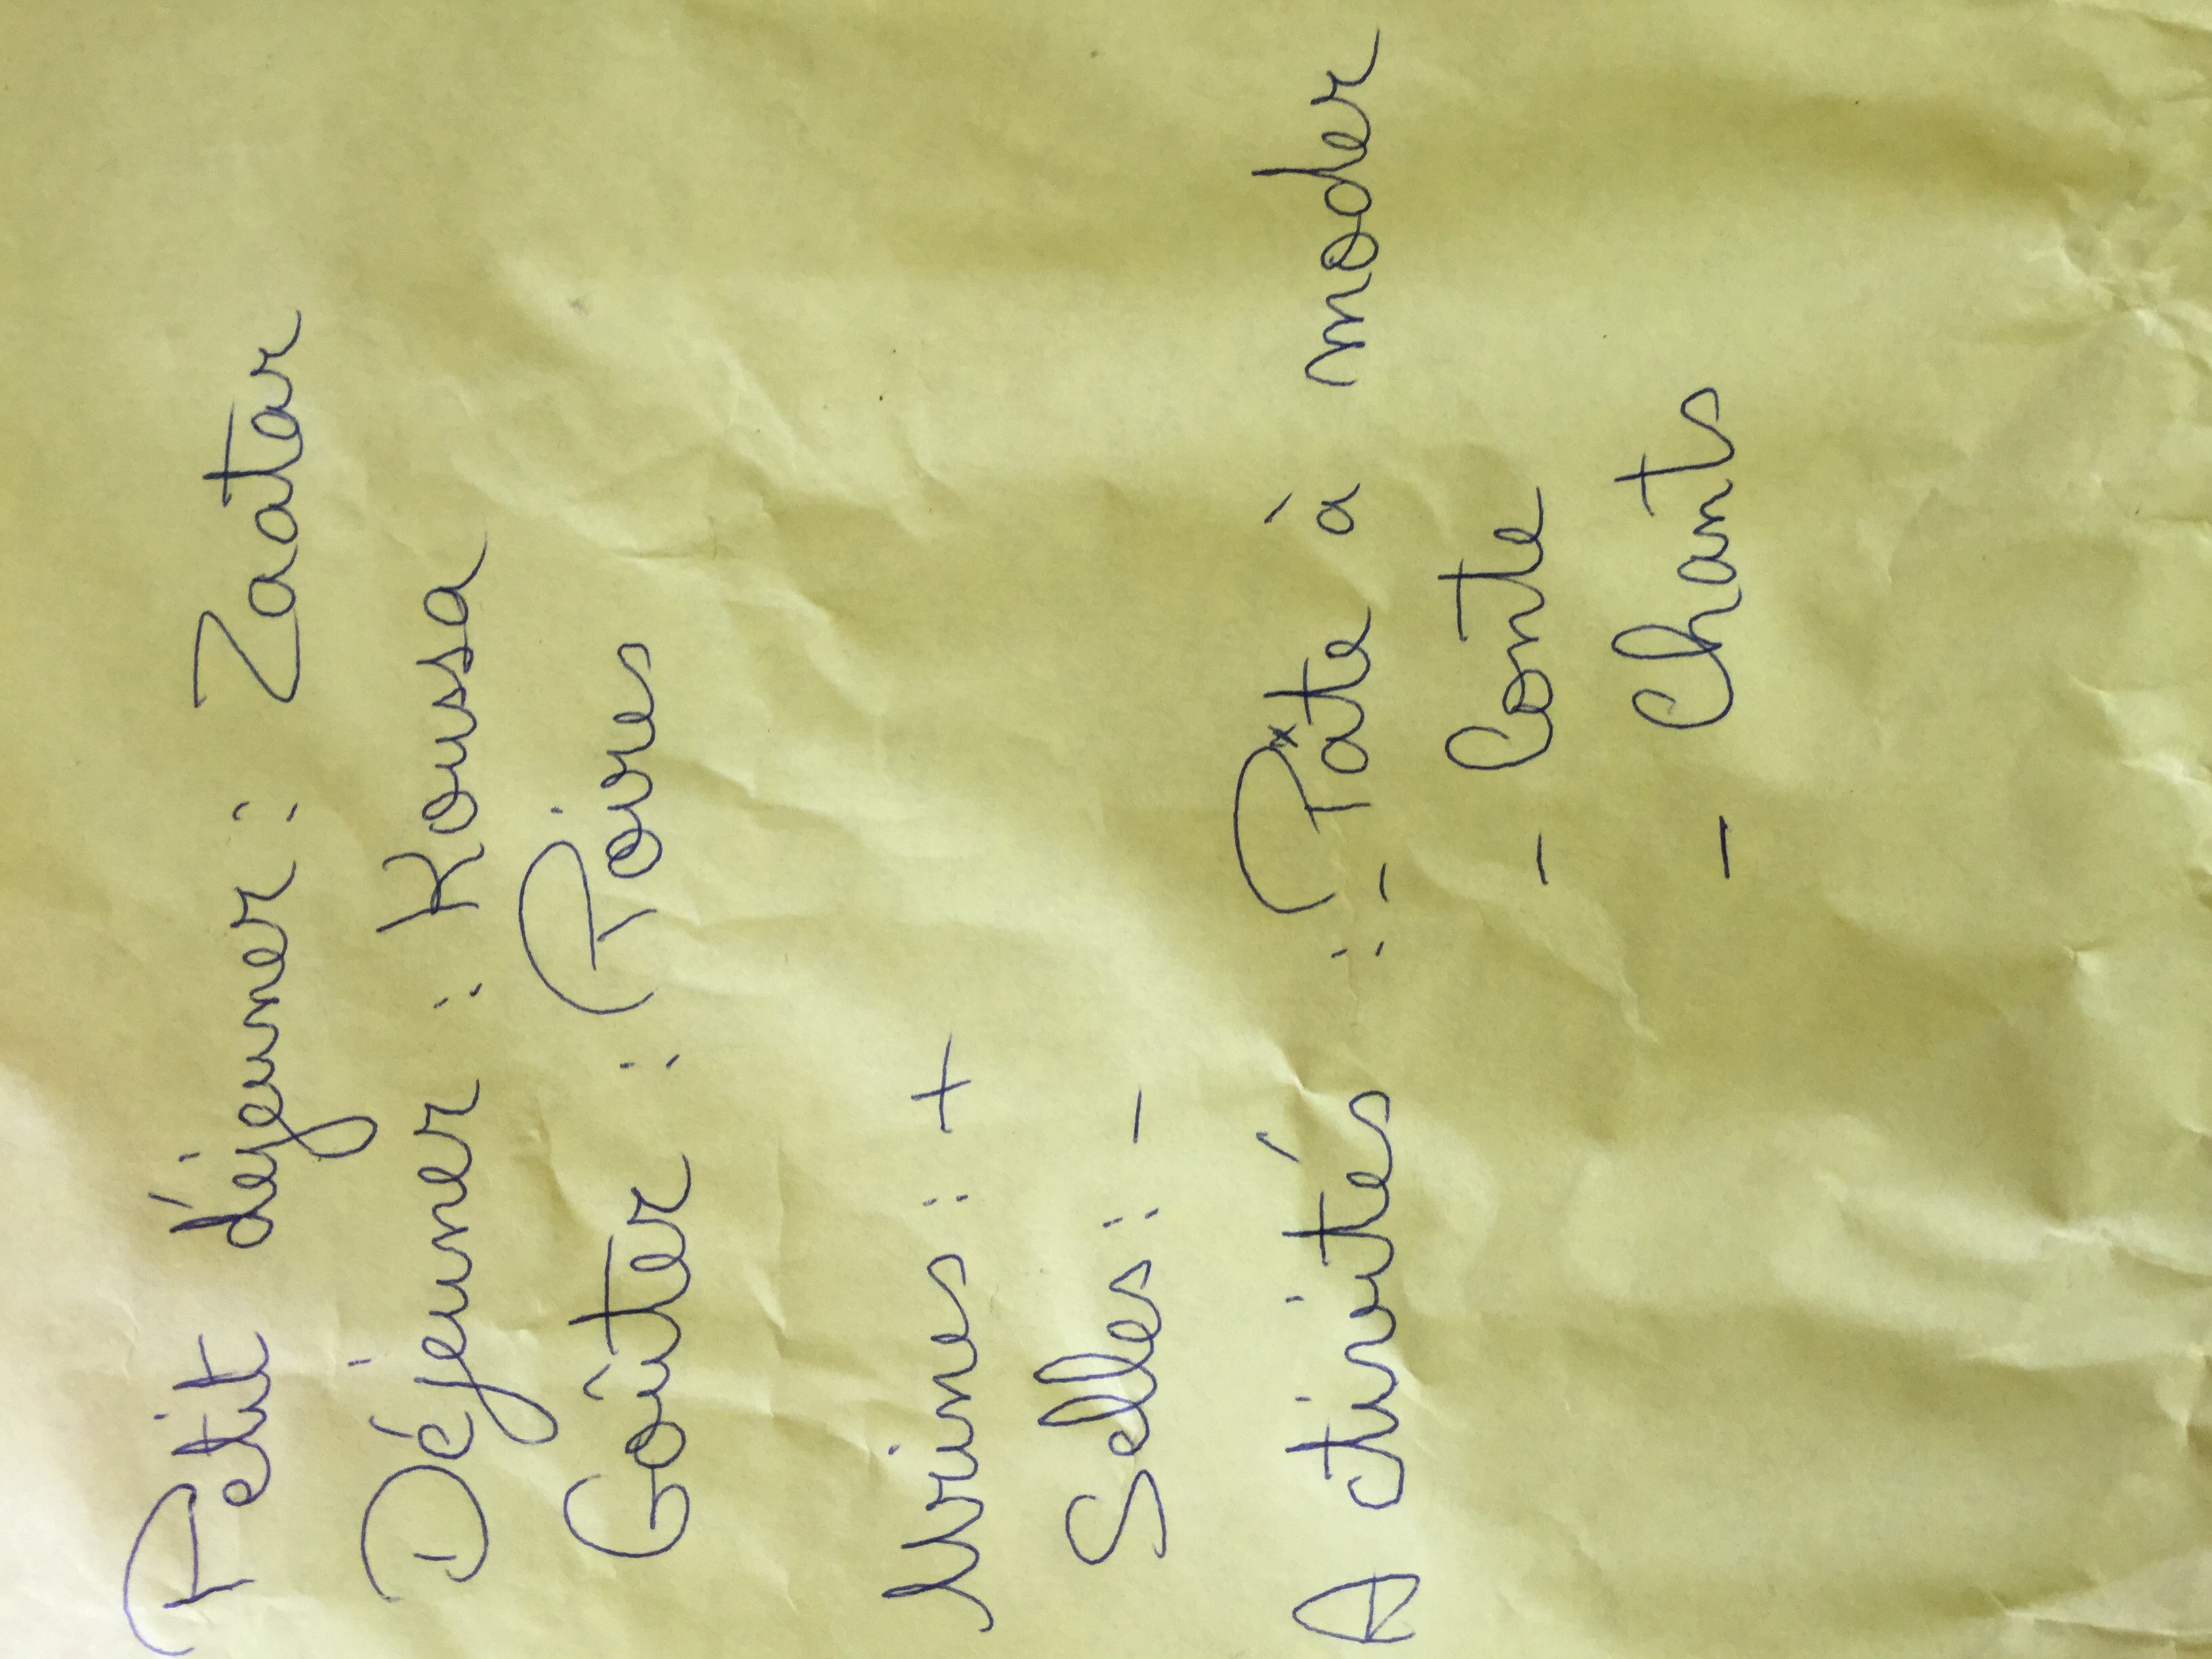 Petit déjeuner : Zaatar
Déjeuner : Koussa
Goûter : Poires
Urines : +
Selles : -
Activités : - Pâte à moder
- Conte
- Chants